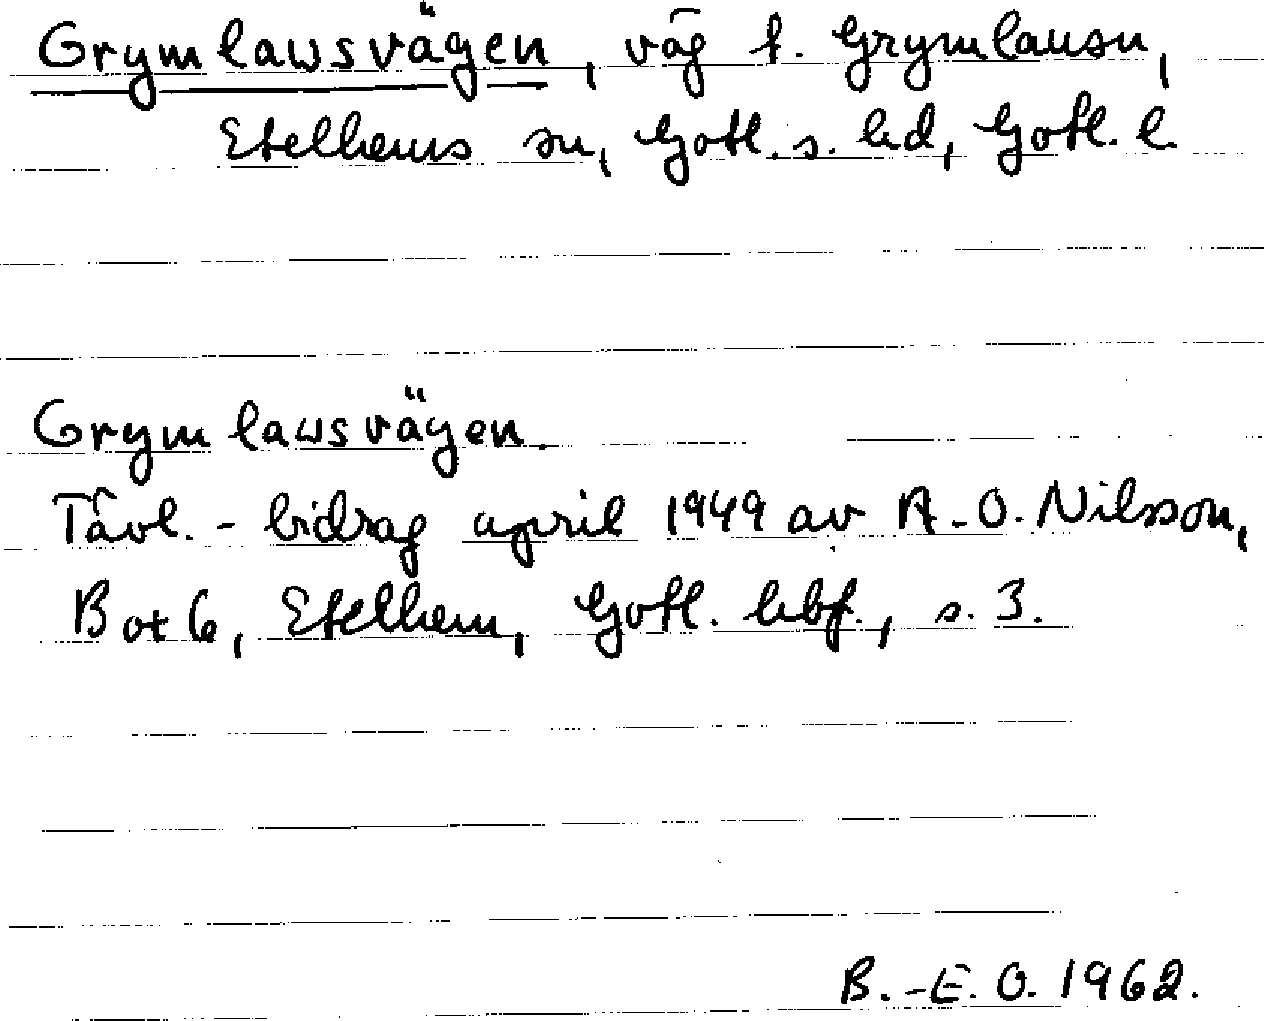 Grymlawsvägen, väg t. Grymlausu,
Etelhems sn, Gotl. s. hd, Gotl. l.
Grymlawsvägen.
Tävl.-bidrag april 1949 av A.-O. Nilsson,
Bott 6, Etelhem, Gotl. hbf., s. 3.
B.-E. O. 1962.